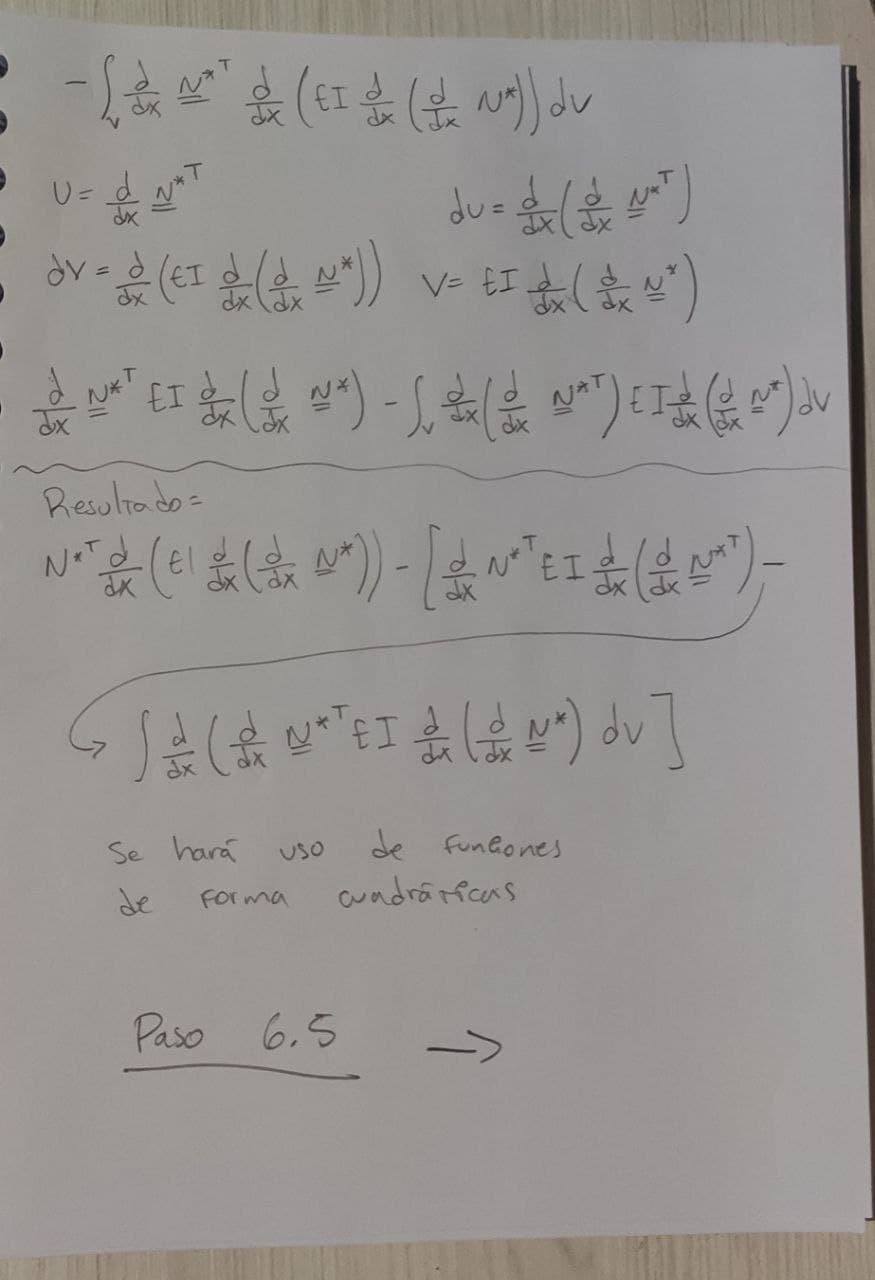 - ∫_V d/dx N*^T d/dx (EI d/dx (d/dx N*)) dV
U = d/dx N*^T du = d/dx (d/dx N*^T)
dV = d/dx (EI d/dx (d/dx N*)) V = EI d/dx (d/dx N*)
d/dx N*^T EI d/dx (d/dx N*) - ∫_V d/dx (d/dx N*^T) EI d/dx (d/dx N*) dV
Resultado =
N*^T d/dx (EI d/dx (d/dx N*)) - [d/dx N*^T EI d/dx (d/dx N*^T) -
∫ d/dx (d/dx N*^T EI d/dx (d/dx N*) dV]
Se hará uso de funciones
de forma cuadráticas
Paso 6.5 →